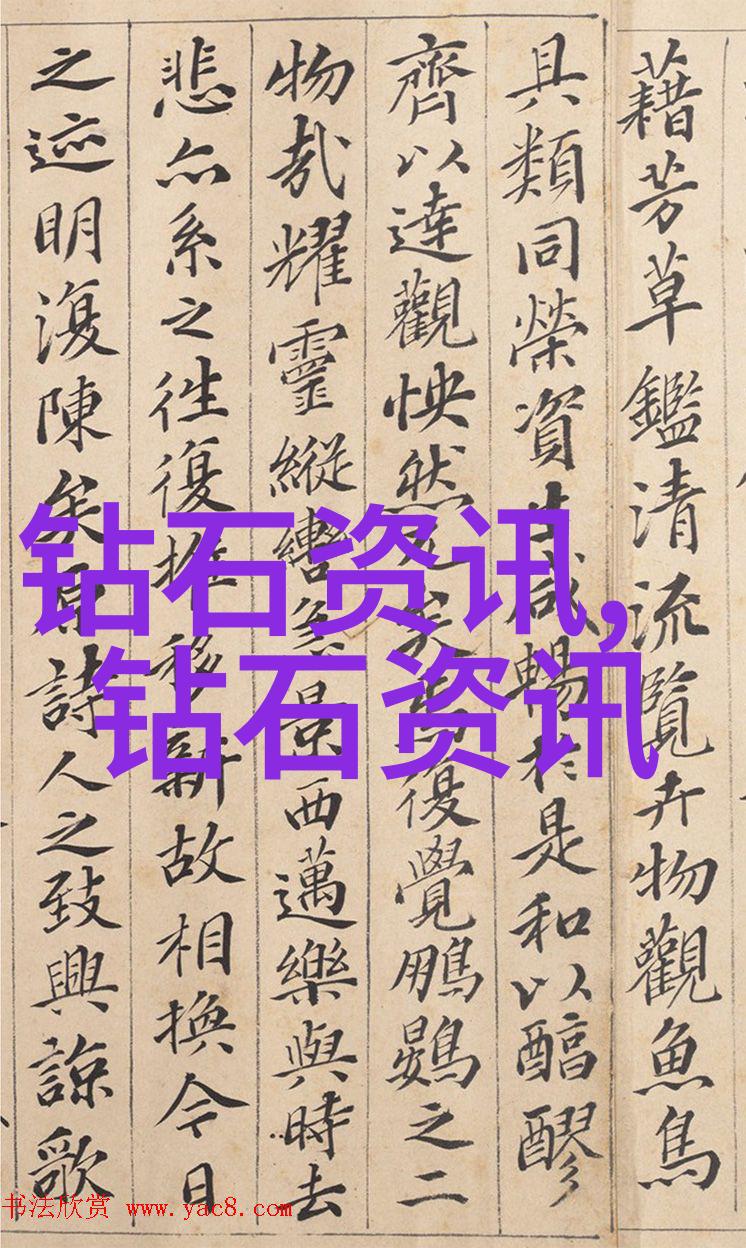 藉芳草鑑清流覽卉物觀魚鳥
具類同榮資生咸暢於是和以醇醪
齊以達觀怏然兀矣焉復覺鵬鷃之二
物哉耀靈縱轡急景西邁樂與時去
悲亦系之往復推移新故相換今日
之迹明復陳矣原詩人之致興諒歌
钻石资讯,
钻石资讯
书法欣赏 www.yac8.com